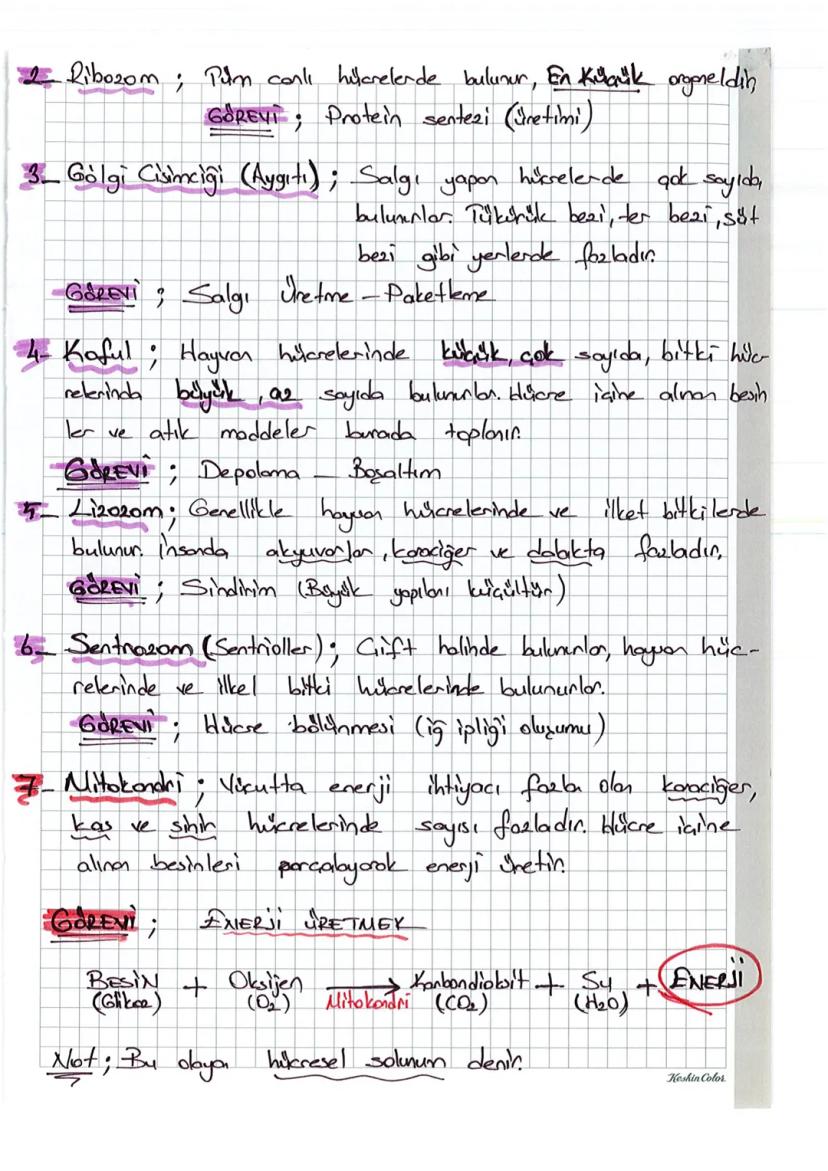 2- Ribozom ; Tüm canlı hücrelerde bulunur, En Küçük organeldir.
GÖREVİ ; Protein sentezi (üretimi)
3- Golgi Cisimciği (Aygıtı) ; Salgı yapan hücrelerde çok sayıda,
bulunurlar. Tükürük bezi, ter bezi, süt
bezi gibi yerlerde fazladır.
GÖREVİ ; Salgı Üretme - Paketleme
4- Koful ; Hayvan hücrelerinde küçük, çok sayıda, bitki hüc-
relerinda büyük, az sayıda bulunurlar. Hücre içine alınan besin
ler ve atık maddeler burada toplanır.
GÖREVİ ; Depolama - Boşaltım
5- Lizozom ; Genellikle hayvan hücrelerinde ve ilket bitkilerde
bulunur. İnsanda akyuvarlar, karaciğer ve dalakta fazladır.
GÖREVİ ; Sindirim (Büyük yapıları küçültür)
6- Sentrozom (Sentrioller) ; Çift halinde bulunurlar, hayvan hüc-
relerinde ve ilkel bitki hücrelerinde bulunurlar.
GÖREVİ ; Hücre bölünmesi (iğ ipliği oluşumu)
7- Mitokondri ; Vücutta enerji ihtiyacı fazla olan karaciğer,
kas ve sinir hücrelerinde sayısı fazladır. Hücre içine
alınan besinleri parçalayarak enerji üretir.
GÖREVİ ; ENERJİ ÜRETMEK
BESİN + Oksijen → Karbondioksit + Su + ENERJİ
(Glikoz) (O₂) Mitokondri (CO₂) (H₂O)
Not ; Bu olaya hücresel solunum denir.
Keskin Color